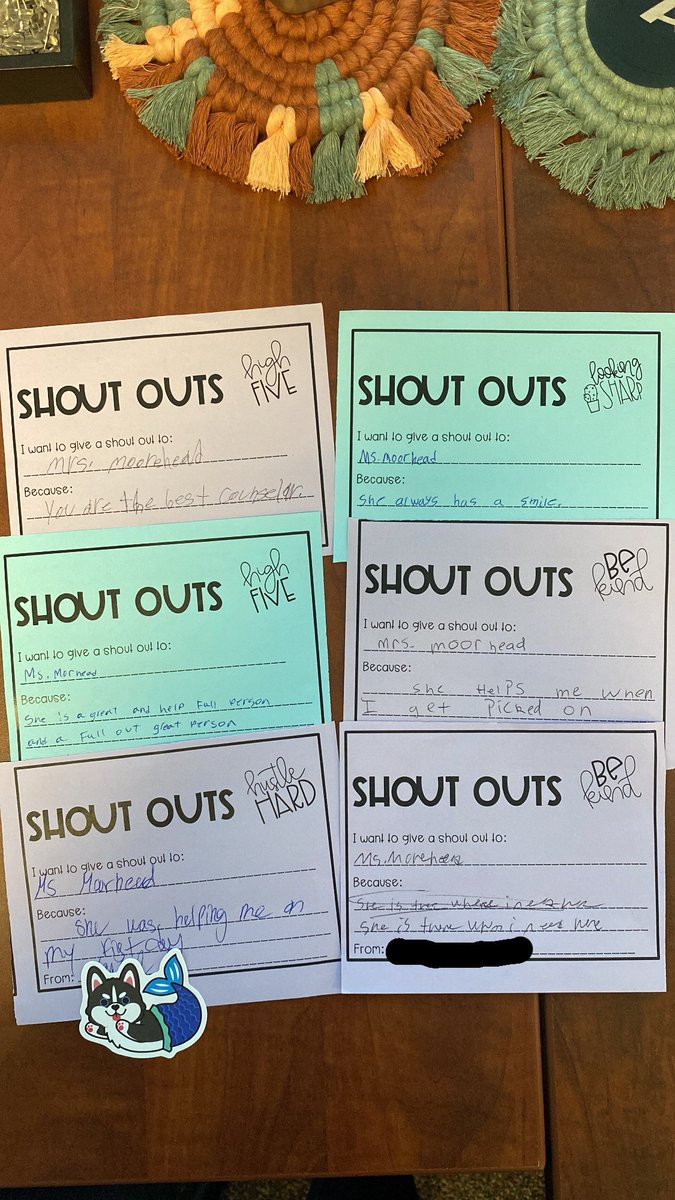 SHOUT OUTS
high
FIVE
I want to give a shout out to:
mrs. moorehead
Because:
You are the best counselor.
SHOUT OUTS
looking
SHARP
I want to give a shout out to:
Ms. moorhead
Because:
she always has a smile.
SHOUT OUTS
high
FIVE
I want to give a shout out to:
Ms. Morhead
Because:
She is a great and help full Person
and a Full out great Person
SHOUT OUTS
BE
kind
I want to give a shout out to:
mrs. moorhead
Because:
she HelPS me when
I get Picked on
SHOUT OUTS
hustle
HARD
I want to give a shout out to:
Ms Marhead
Because:
she was helping me on
my
From:
SHOUT OUTS
BE
kind
I want to give a shout out to:
Ms.
Because:
She is there
she is there when i need her
From: